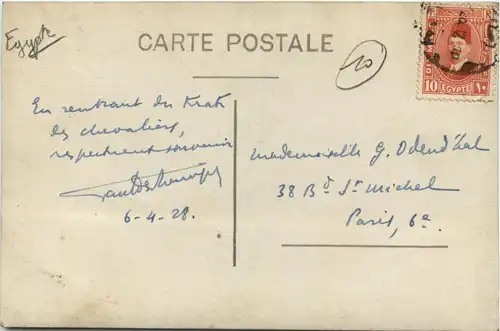 Egypte
CARTE POSTALE
20
10 EGYPTE ١٠
En rentrant du Krak
des chevaliers,
respectueux souvenir
6-4-28.
Mademoiselle G. Odend'hal
38 Bd St Michel
Paris, 6e.